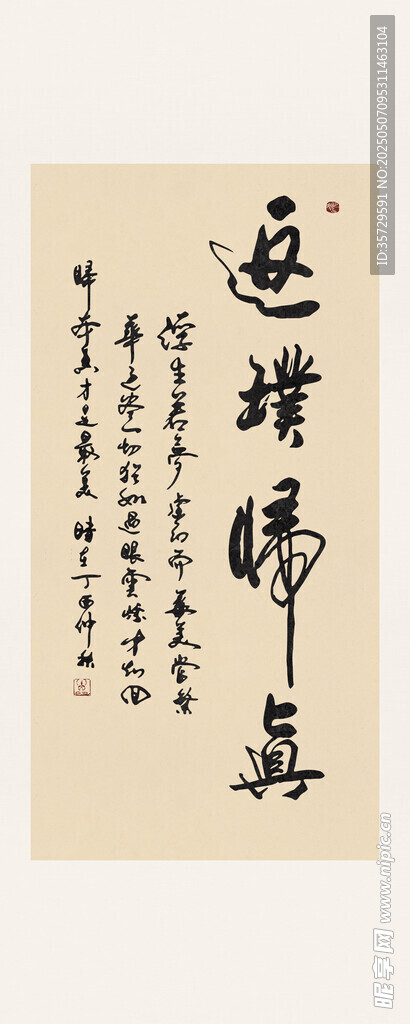 返璞歸真
浮生若夢虛幻而華美當繁
華過盡一切猶如過眼雲煙才知回
歸本真才是最美 時在丁酉仲秋
ID:35729591 NO:20250507095311463104
昵享网 www.nipic.cn